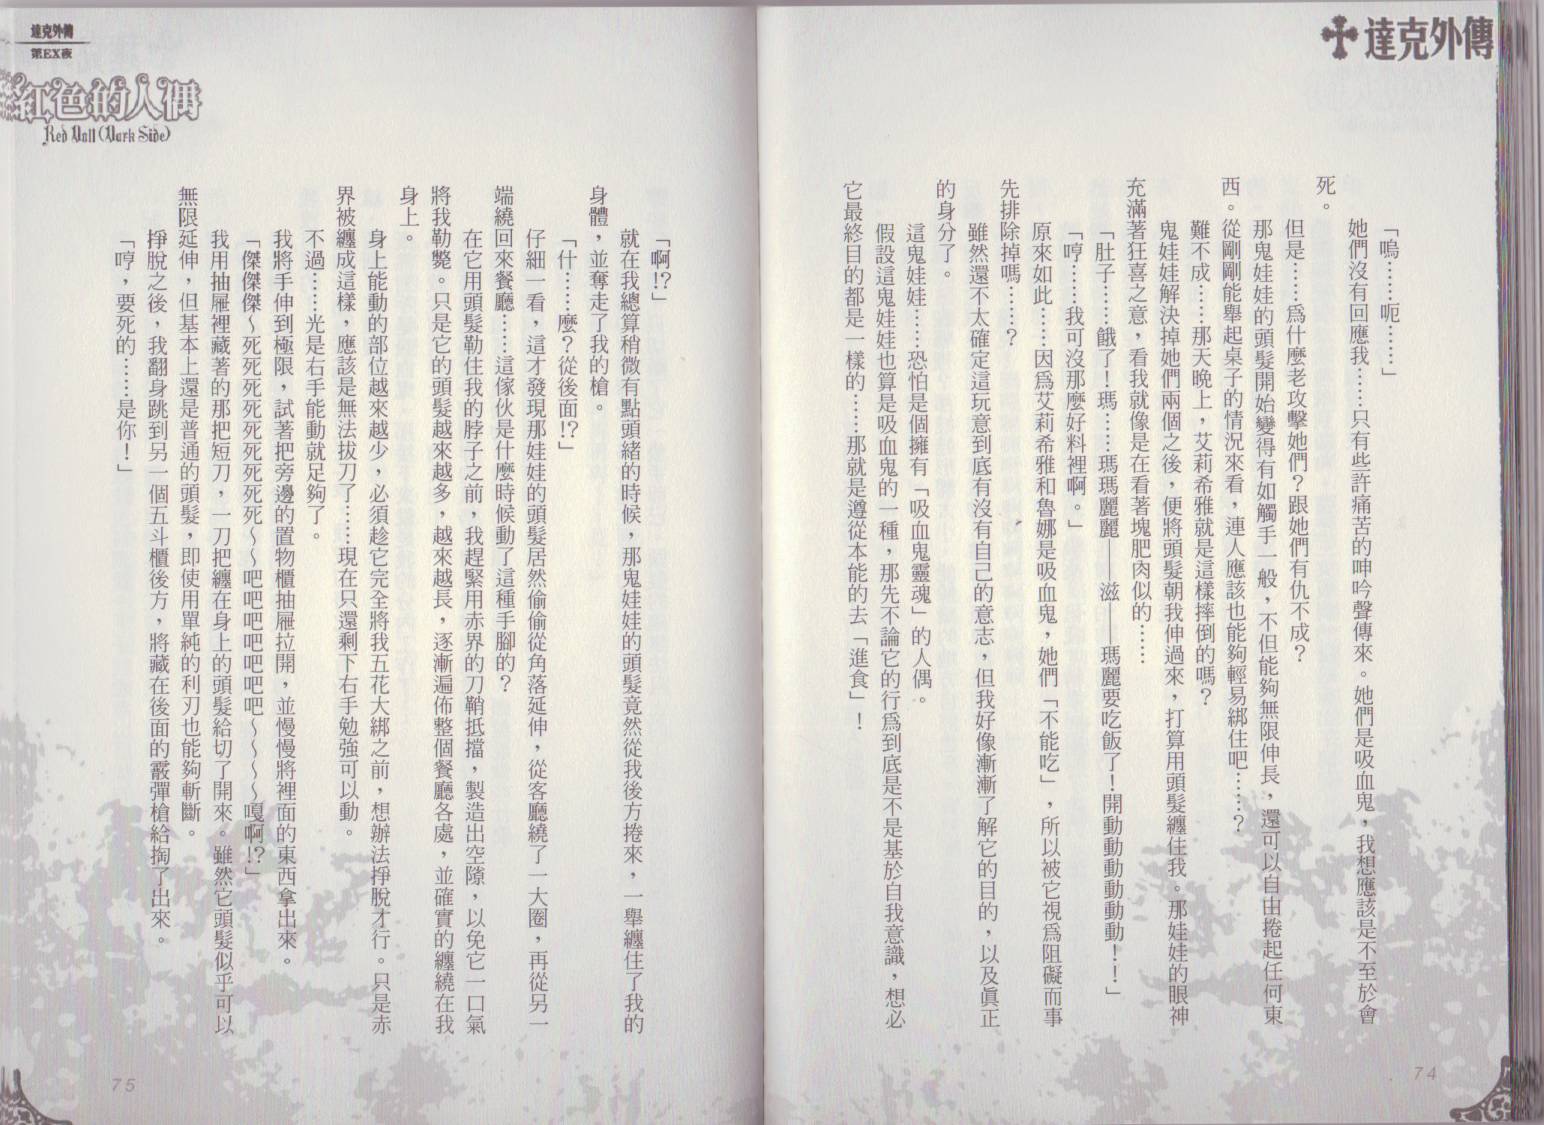 達克外傳
「嗚……呃……」
她們沒有回應我……只有些許痛苦的呻吟聲傳來。她們是吸血鬼，我想應該是不至於會
死。
但是……為什麼老攻擊她們？跟她們有仇不成？
那鬼娃娃的頭髮開始變得有如觸手一般，不但能夠無限伸長，還可以自由捲起任何東
西。從剛剛能舉起桌子的情況來看，連人應該也能夠輕易綁住吧……？
難不成……那天晚上，艾莉希雅就是這樣摔倒的嗎？
鬼娃娃解決掉她們兩個之後，便將頭髮朝我伸過來，打算用頭髮纏住我。那娃娃的眼神
充滿著狂喜之意，看我就像是在看著塊肥肉似的……
「肚子……餓了！瑪……瑪瑪麗麗——滋——瑪麗要吃飯了！開動動動動動！！」
「哼……我可沒那麼好料裡啊。」
原來如此……因為艾莉希雅和魯娜是吸血鬼，她們「不能吃」，所以被它視為阻礙而事
先排除掉嗎……？
雖然還不太確定這玩意到底有沒有自己的意志，但我好像漸漸了解它的目的，以及真正
的身分了。
這鬼娃娃……恐怕是個擁有「吸血鬼靈魂」的人偶。
假設這鬼娃娃也算是吸血鬼的一種，那先不論它的行為到底是不是基於自我意識，想必
它最終目的都是一樣的……那就是遵從本能的去「進食」！
74
達克外傳
第EX夜
紅色的人偶
Red Doll (Dark Side)
「啊!?」
就在我總算稍微有點頭緒的時候，那鬼娃娃的頭髮竟然從我後方捲來，一舉纏住了我的
身體，並奪走了我的槍。
「什……麼？從後面!?」
仔細一看，這才發現那娃娃的頭髮居然偷偷從角落延伸，從客廳繞了一大圈，再從另一
端繞回來餐廳……這傢伙是什麼時候動了這種手腳的？
在它用頭髮勒住我的脖子之前，我趕緊用赤界的刀鞘抵擋，製造出空隙，以免它一口氣
將我勒斃。只是它的頭髮越來越多，越來越長，逐漸遍佈整個餐廳各處，並確實的纏繞在我
身上。
身上能動的部位越來越少，必須趁它完全將我五花大綁之前，想辦法掙脫才行。只是赤
界被纏成這樣，應該是無法拔刀了……現在只還剩下右手勉強可以動。
不過……光是右手能動就足夠了。
我將手伸到極限，試著把旁邊的置物櫃抽屜拉開，並慢慢將裡面的東西拿出來。
「傑傑傑～死死死死死死死死死～～吧吧吧吧吧吧吧～～～～嘎啊!?」
我用抽屜裡藏著的那把短刀，一刀把纏在身上的頭髮給切了開來。雖然它頭髮似乎可以
無限延伸，但基本上還是普通的頭髮，即使用單純的利刃也能夠斬斷。
掙脫之後，我翻身跳到另一個五斗櫃後方，將藏在後面的霰彈槍給掏了出來。
「哼，要死的……是你！」
75